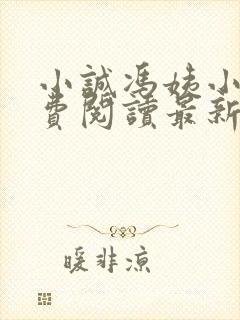 小誠馮姨小
費閱讀最新
暖非涼